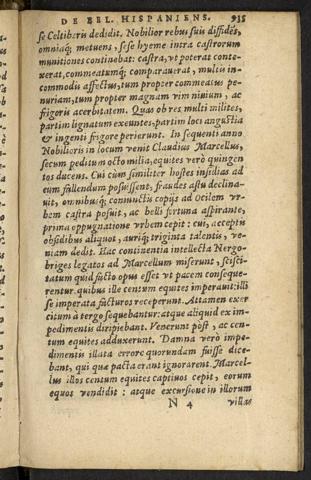 DE BEL. HISPANIENS. 935
se Celtiberis dedidit. Nobilior rebus suis diffidés,
omniaq; metuens, sese hyeme intra castrorum
munitiones continebat: castra, vt poterat conte-
xerat, commeatumq; comparauerat, multis in-
commodis affectus, tum propter commeatus pe-
nuriam, tum propter magnam vim niuium, ac
frigoris acerbitatem. Quas ob res multi milites,
partim lignatum exeuntes, partim loci angustia
& ingenti frigore perierunt. In sequenti anno
Nobilioris in locum venit Claudius Marcellus,
secum peditum octo milia, equites verò quingen
tos ducens. Cui cùm similiter hostes insidias ad
eum fallendum posuissent, fraudes astu declina-
uit, omnibusq; coniunctis copijs ad Ocilem vr-
bem castra posuit, ac belli fortuna aspirante,
prima oppugnatione vrbem cepit: cui, acceptis
obsidibus aliquot, auriq; triginta talentis, ve-
niam dedit. Hac continentia intellecta Nergo-
briges legatos ad Marcellum miserunt, scisci-
tatum quid facto opus esset vt pacem conseque-
rentur. quibus ille centum equites imperauit: illi
se imperata facturos receperunt. Attamen exer
citum à tergo sequebantur: atque aliquid ex im-
pedimentis diripiebant. Venerunt pòst, ac cen-
tum equites adduxerunt. Damna verò impe-
dimentis illata errore quorundam fuisse dice-
bant, qui quæ pacta erant ignorarent. Marcel-
lus illos centum equites captiuos cepit, eorum
equos vendidit: atque excursione in illorum
N 4 villas